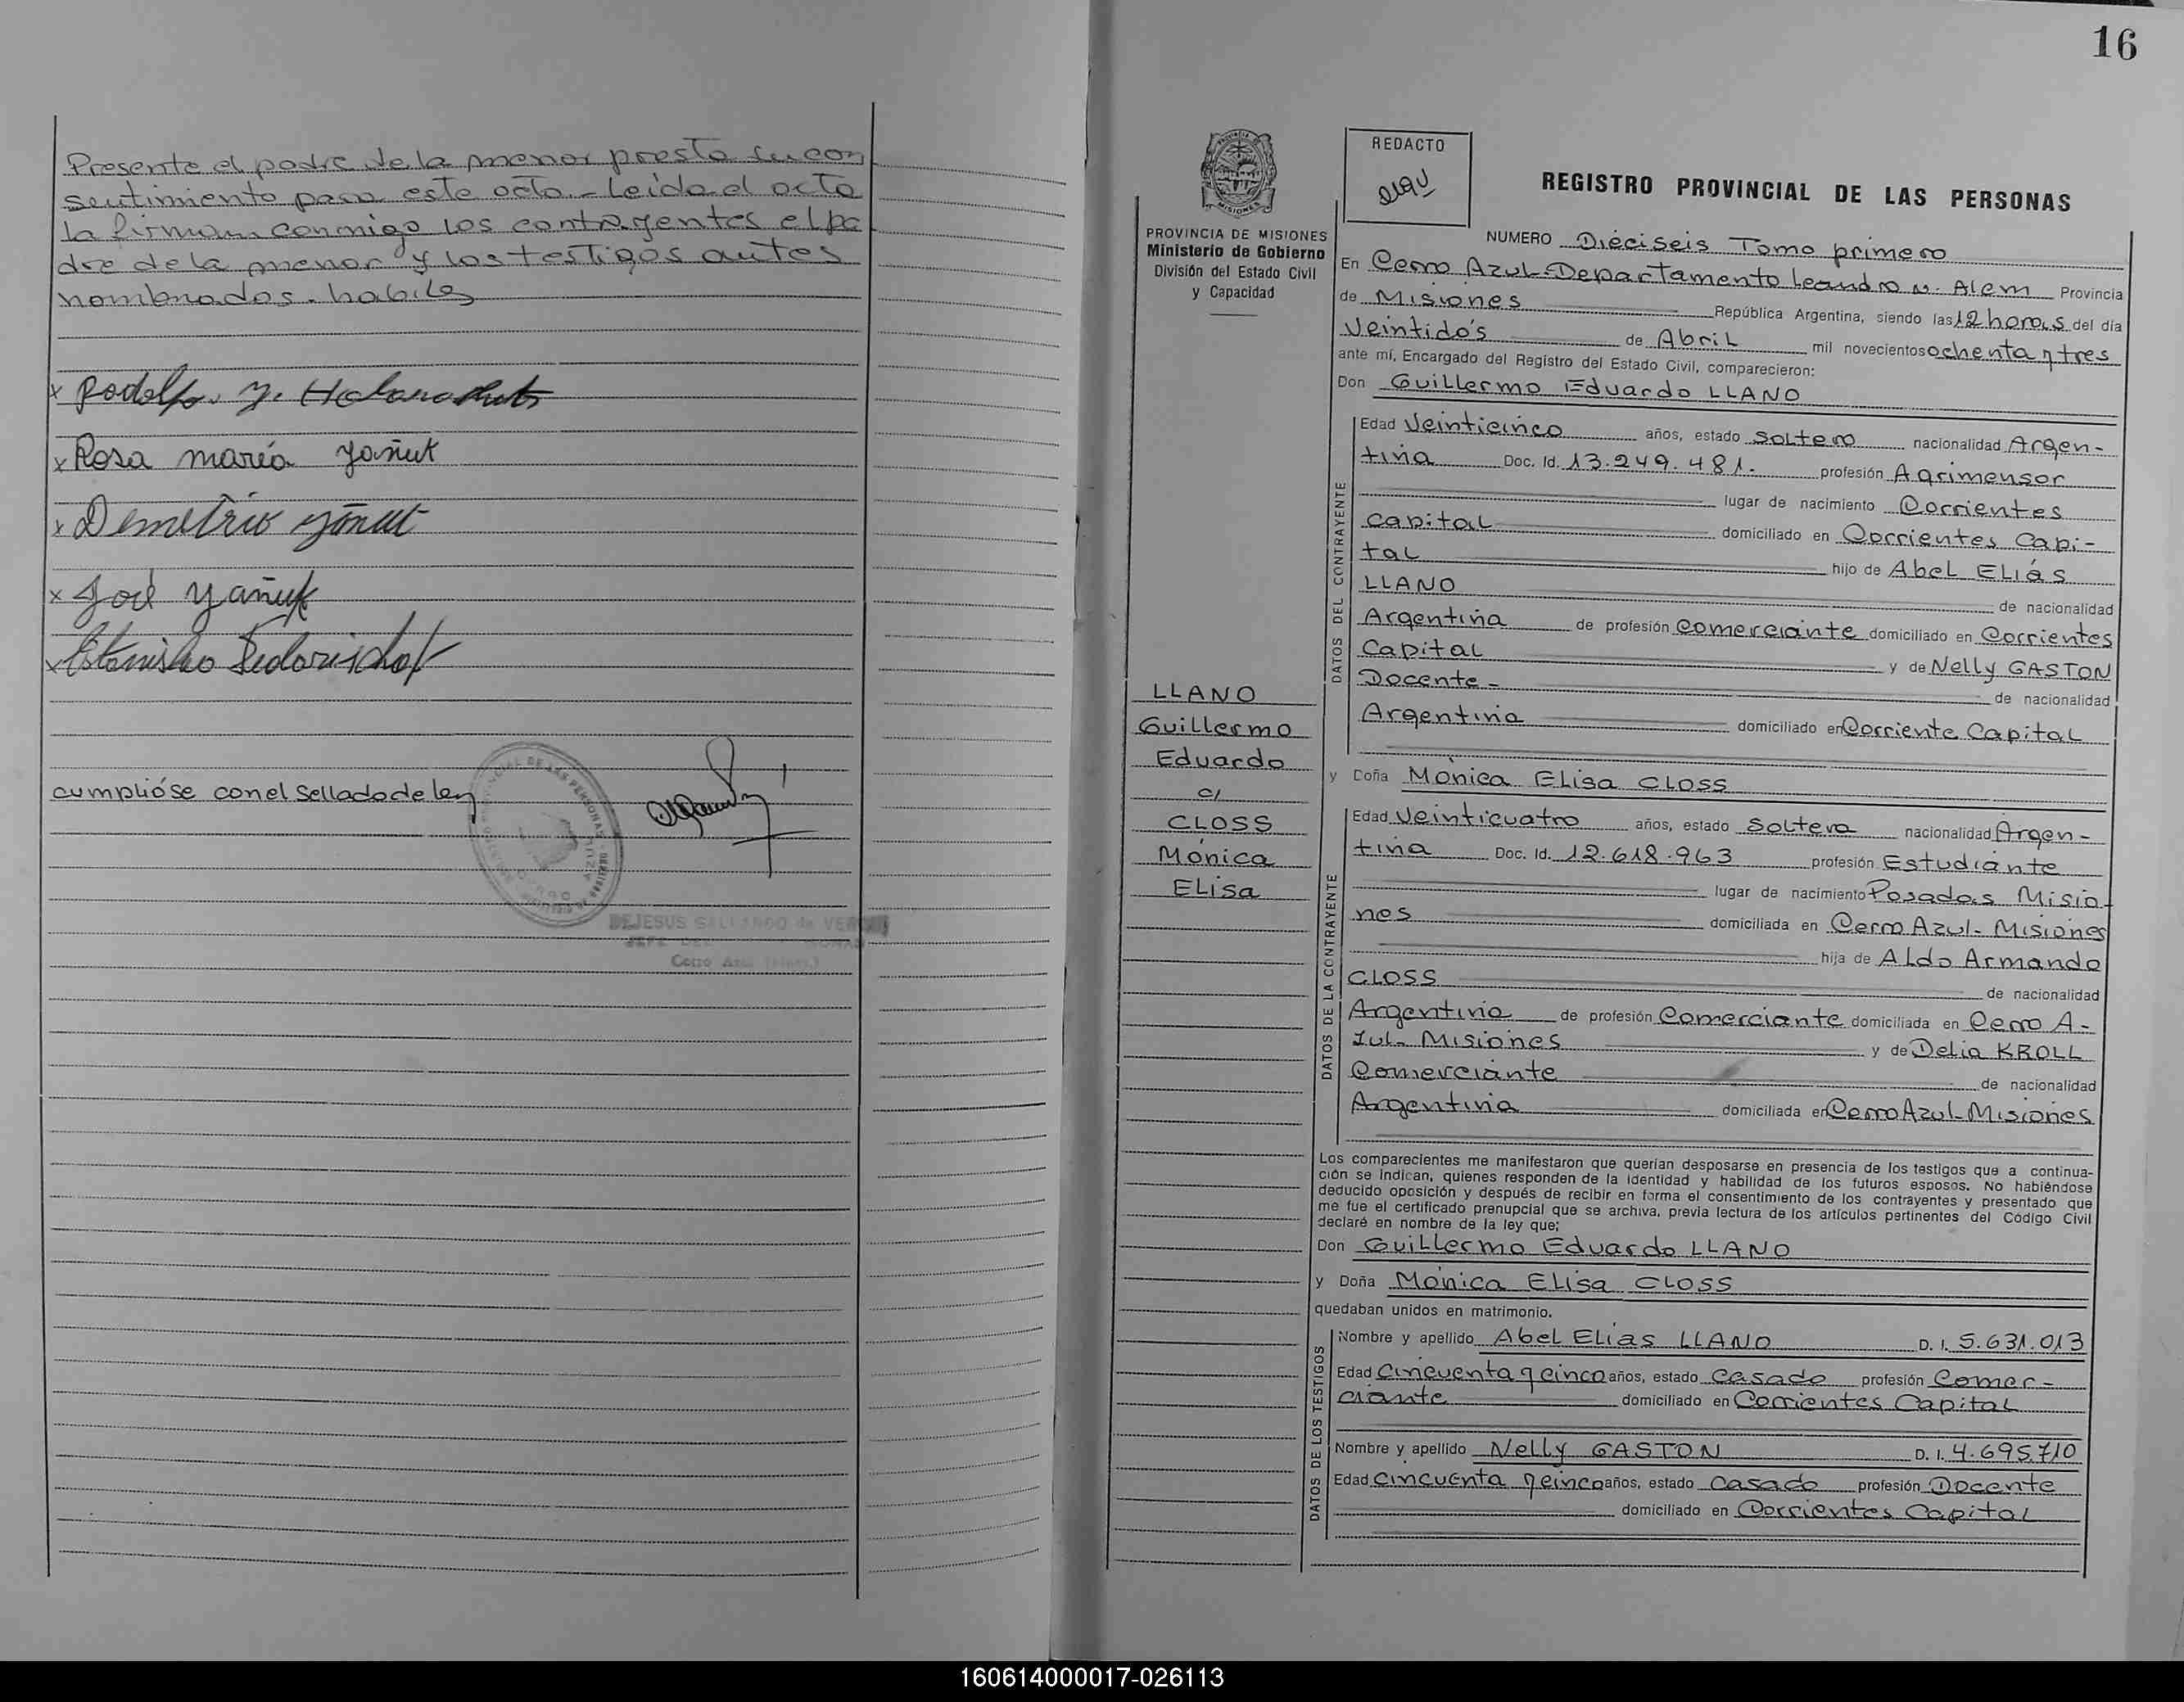 Presente el padre de la menor presta su con
sentimiento para este acto.- Leída el acta
la firman conmigo los contrayentes el pa
dre de la menor y los testigos antes
nombrados. habiles
x Rodolfo. J.
x Rosa maría Yañuk
x Demetrio Yañuk
x José Yañuk
x Estanislao
cumplióse con el sellado de ley
DEJESUS GALLARDO de
JEFE DEL
Cerro Azul (Mnes.)
16
PROVINCIA DE MISIONES
Ministerio de Gobierno
División del Estado Civil
y Capacidad
LLANO
Guillermo
Eduardo
c/
CLOSS
Mónica
Elisa
REDACTO
REGISTRO PROVINCIAL DE LAS PERSONAS
NUMERO Dieciseis Tomo primero
En Cerro Azul-Departamento Leandro N. Alem Provincia
de Misiones República Argentina, siendo las 12 horas del día
Veintidós de Abril mil novecientos ochenta y tres
ante mí, Encargado del Registro del Estado Civil, comparecieron:
Don Guillermo Eduardo LLANO
DATOS DEL CONTRAYENTE
Edad Veinticinco años, estado Soltero nacionalidad Argen-
tina Doc. Id. 13.249.481. profesión Agrimensor
lugar de nacimiento Corrientes
capital domiciliado en Corrientes Capi-
tal hijo de Abel Elías
LLANO de nacionalidad
Argentina de profesión Comerciante domiciliado en Corrientes
Capital y de Nelly GASTON
Docente - de nacionalidad
Argentina domiciliado en Corriente Capital
y Doña Mónica Elisa CLOSS
DATOS DE LA CONTRAYENTE
Edad Veinticuatro años, estado Soltera nacionalidad Argen-
tina Doc. Id. 12.618.963 profesión Estudiante
lugar de nacimiento Posadas Misio-
nes domiciliada en Cerro Azul- Misiones
hija de Aldo Armando
CLOSS de nacionalidad
Argentina de profesión Comerciante domiciliada en Cerro A-
zul- Misiones y de Delia KROLL
Comerciante de nacionalidad
Argentina domiciliada en Cerro Azul-Misiones
Los comparecientes me manifestaron que querían desposarse en presencia de los testigos que a continua-
ción se indican, quienes responden de la identidad y habilidad de los futuros esposos. No habiéndose
deducido oposición y después de recibir en forma el consentimiento de los contrayentes y presentado que
me fue el certificado prenupcial que se archiva, previa lectura de los artículos pertinentes del Código Civil
declaré en nombre de la ley que;
Don Guillermo Eduardo LLANO
y Doña Mónica Elisa CLOSS
quedaban unidos en matrimonio.
DATOS DE LOS TESTIGOS
Nombre y apellido Abel Elias LLANO D. I. 5.631.013
Edad Cincuenta y cinco años, estado casado profesión Comer-
ciante domiciliado en Corrientes Capital
Nombre y apellido Nelly GASTON D. I. 4.695.710
Edad cincuenta y cinco años, estado casado profesión Docente
domiciliado en Corrientes Capital
160614000017-026113